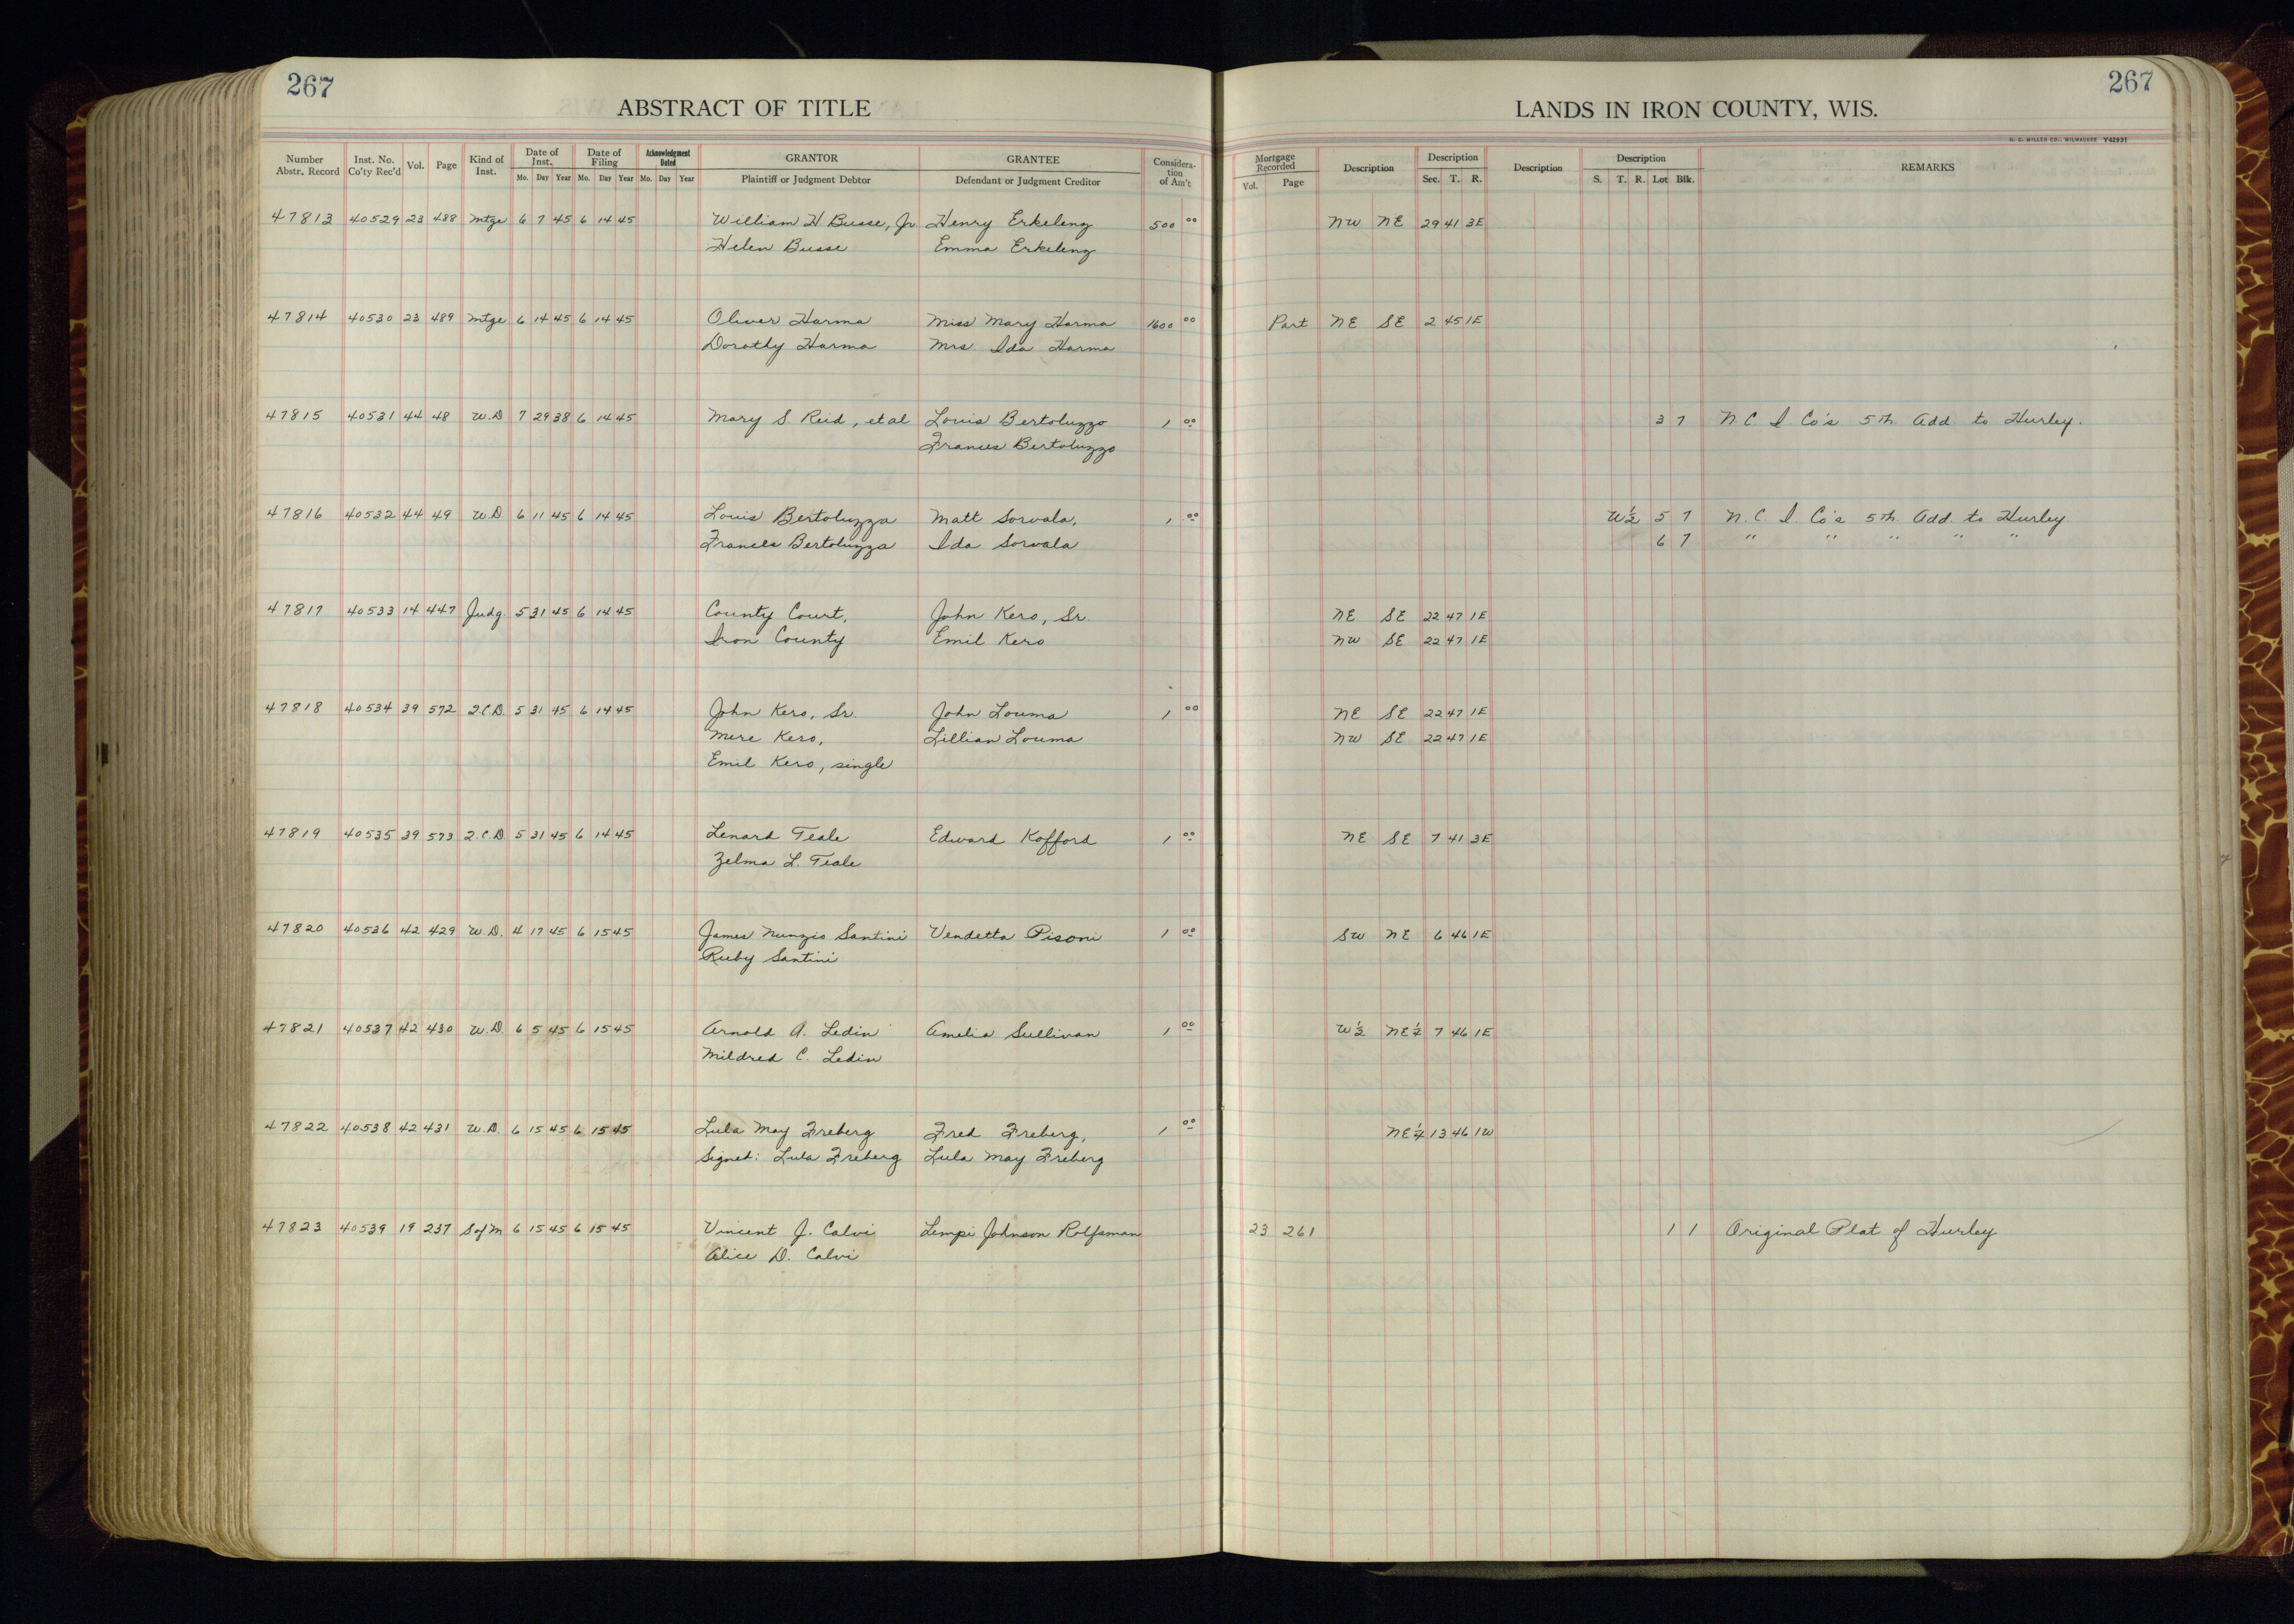 267
ABSTRACT OF TITLE
Number Abstr. Record | Inst. No. Co'ty Rec'd | Vol. | Page | Kind of Inst. | Date of Inst. Mo. Day Year | Date of Filing Mo. Day Year | Acknowledgment Dated Mo. Day Year | GRANTOR Plaintiff or Judgment Debtor | GRANTEE Defendant or Judgment Creditor | Considera-tion of Am't
267
LANDS IN IRON COUNTY, WIS.
H. C. MILLER CO., MILWAUKEE Y42931
Mortgage Recorded Vol. Page | Description | Description Sec. T. R. | Description | Description S. T. R. Lot Blk. | REMARKS
47813 40529 23 488 Mtge 6 7 45 6 14 45 William H Busse, Jr. Henry Erkelenz 500 00 NW NE 29 41 3E
Helen Busse Emma Erkelenz
47814 40530 23 489 Mtge 6 14 45 6 14 45 Oliver Harma Miss Mary Harma 1600 00 Part NE SE 2 45 1E
Dorothy Harma Mrs Ida Harma
47815 40531 44 48 W.D 7 29 38 6 14 45 Mary S. Reid, et al Louis Bertoluzzo 1 00 3 7 N.C. I. Co's 5th Add. to Hurley.
Frances Bertoluzzo
47816 40532 44 49 W.D. 6 11 45 6 14 45 Louis Bertoluzza Matt Sorvala, 1 00 W½ 5 7 N.C. I. Co's 5th Add. to Hurley
Frances Bertoluzza Ida Sorvala 6 7 " " " " "
47817 40533 14 447 Judg. 5 31 45 6 14 45 County Court, John Kero, Sr. NE SE 22 47 1E
Iron County Emil Kero NW SE 22 47 1E
47818 40534 39 572 2.C.D. 5 31 45 6 14 45 John Kero, Sr. John Louma 1 00 NE SE 22 47 1E
Mere Kero, Lillian Louma NW SE 22 47 1E
Emil Kero, single
47819 40535 39 573 2.C.D 5 31 45 6 14 45 Lenard Teale Edward Kofford 1 00 NE SE 7 41 3E
Zelma L. Teale
47820 40536 42 429 W.D. 4 17 45 6 15 45 James Nunzio Santini Vendetta Pisoni 1 00 SW NE 6 46 1E
Ruby Santini
47821 40537 42 430 W.D. 6 5 45 6 15 45 Arnold A. Ledin Amelia Sullivan 1 00 W½ NE¼ 7 46 1E
Mildred C. Ledin
47822 40538 42 431 W.D. 6 15 45 6 15 45 Lula May Freberg Fred Freberg, 1 00 NE¼ 13 46 1W
Signed: Lula Freberg Lula May Freberg
47823 40539 19 237 S of M 6 15 45 6 15 45 Vincent J. Calvi Lempi Johnson Rolfsman 23 261 1 1 Original Plat of Hurley
Alice D. Calvi